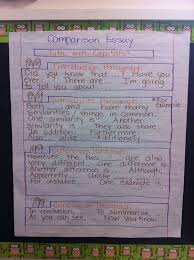 Comparison Essay
Title with Capitals!
Introduction Paragraph
Did you know that... Have you
ever... There are... I'm going
to tell you about
Similarities Paragraph
For example
Both... have many
similarities / things in common.
One similarity is... Another
similarity is... They also share
In addition... Furthermore...
Also... Likewise... Additionally
However the two... are also
very different... One difference is
Another difference is... Although
Apparently... Unlike...
For instance... One example is...
In conclusion, To summarize,
As you can see, Now you know